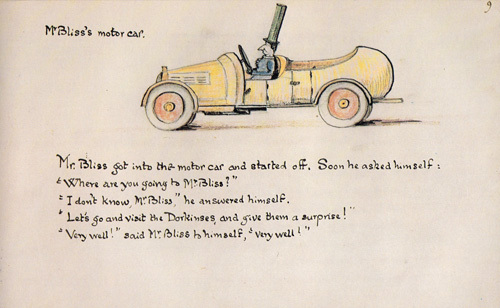 9
Mr. Bliss's motor car.
Mr. Bliss got into the motor car and started off. Soon he asked himself :
"Where are you going to Mr. Bliss?"
"I don't know, Mr. Bliss," he answered himself.
"Let's go and visit the Dorkinses, and give them a surprise!"
"Very well!" said Mr. Bliss to himself, "very well!"